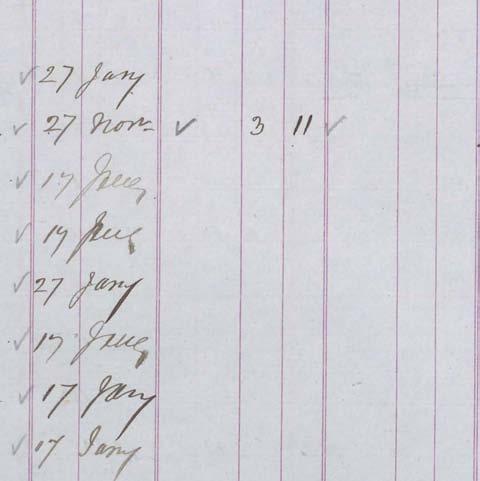 ✓ 27 Jany
✓ 27 Novr ✓ 3 11 ✓
✓ 17 Jany
✓ 17
✓ 27 Jany
✓ 17 Jany
✓ 17 Jany
✓ 17 Jany